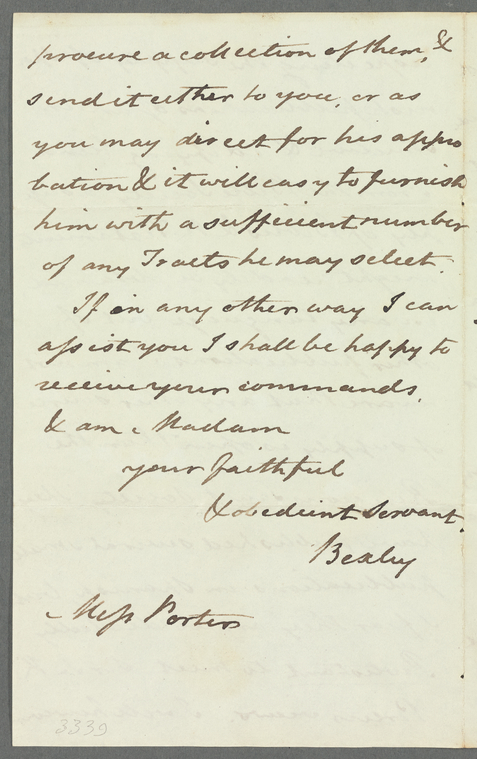 procure a collection of them, &
send it either to you, or as
you may direct for his appro
bation & it will easy to furnish
him with a sufficient number
of any Tracts he may select.
If in any other way I can
assist you I shall be happy to
receive your commands,
& am Madam
your faithful
& obedient Servant.
Bexley
Miss Porter
3339